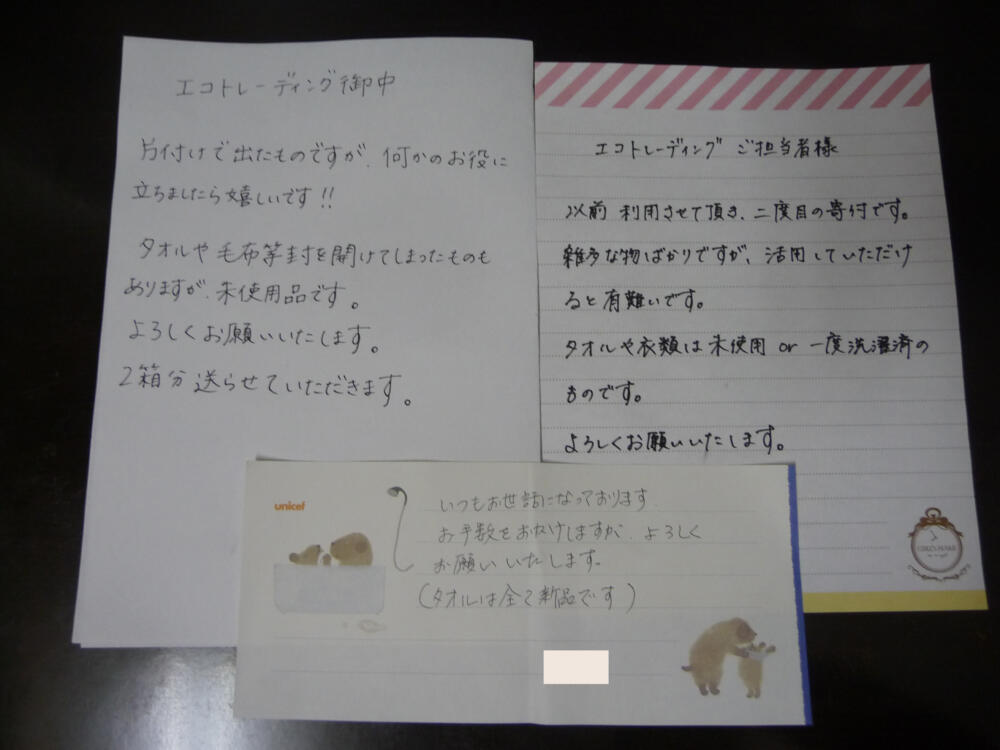 エコトレーディング御中
片付けで出たものですが、何かのお役に
立ちましたら嬉しいです!!
タオルや毛布等封を開けてしまったものも
ありますが、未使用品です。
よろしくお願いいたします。
2箱分送らせていただきます。
エコトレーディング ご担当者様
以前 利用させて頂き、二度目の寄付です。
雑多な物ばかりですが、活用していただけ
ると有難いです。
タオルや衣類は未使用 or 一度洗濯済の
ものです。
よろしくお願いいたします。
unicef
いつもお世話になっております
お手数をおかけしますが、よろしく
お願いいたします。
(タオルは全て新品です)